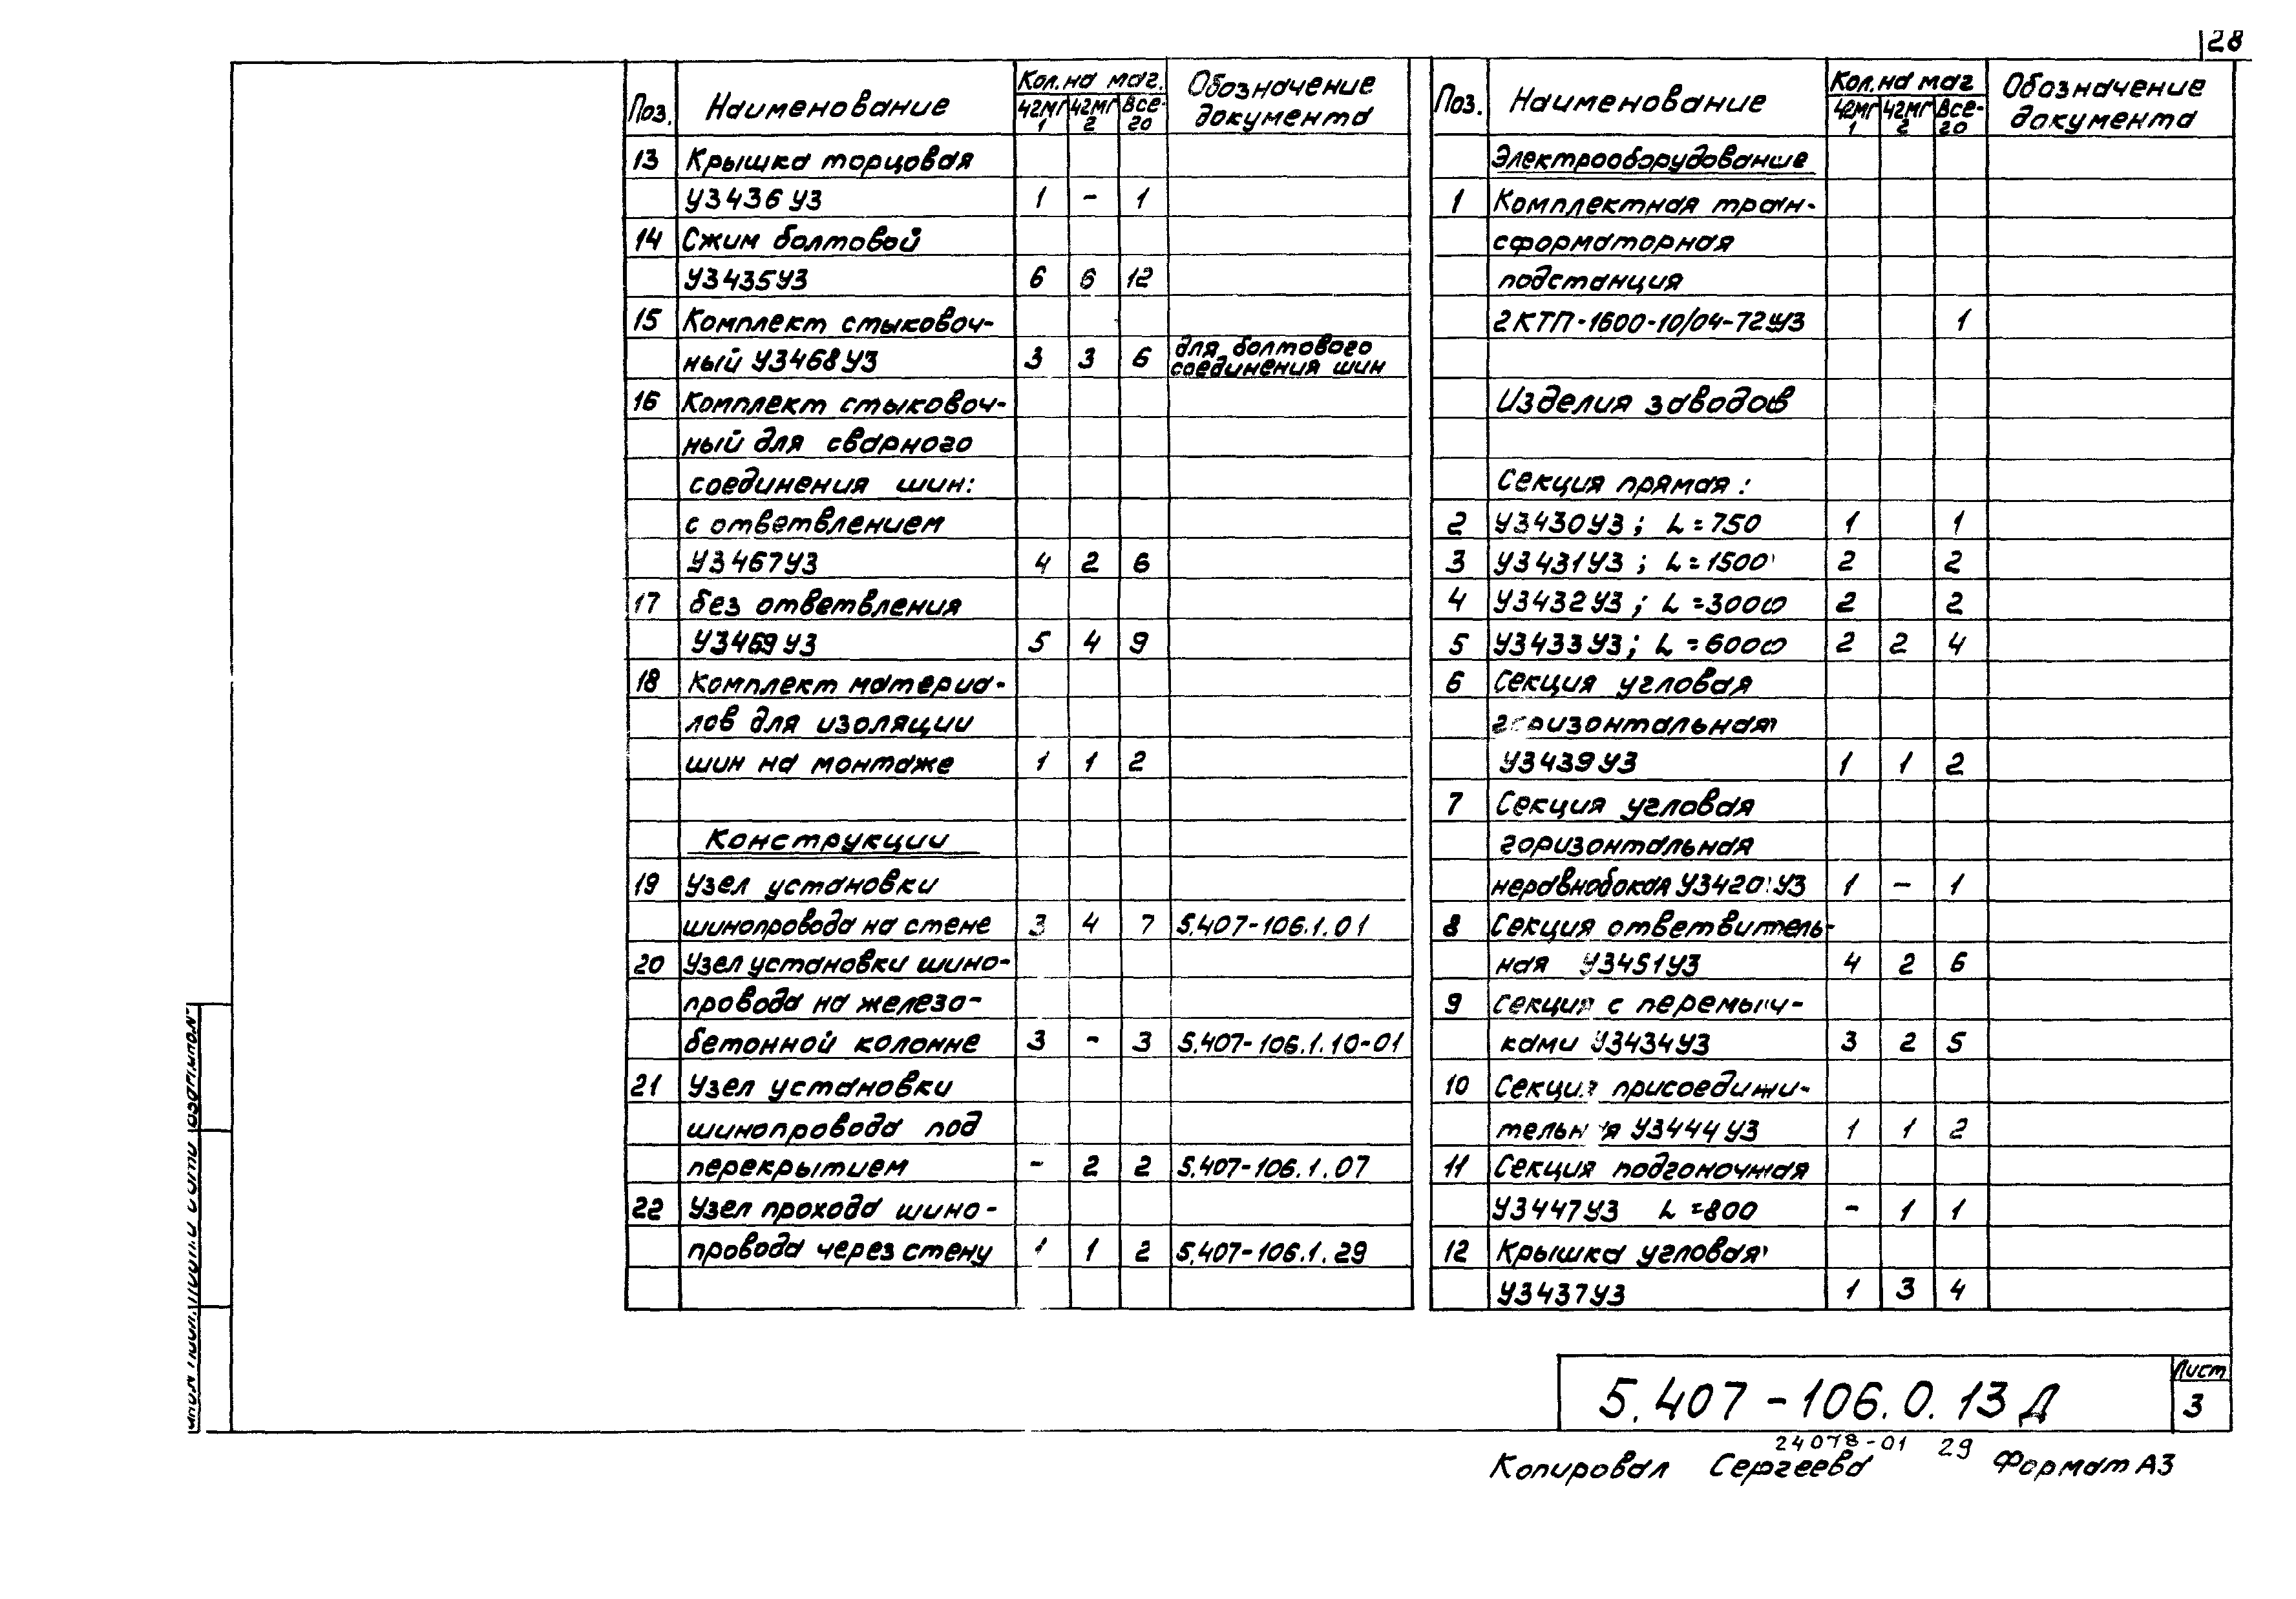 28
Поз. Наименование Кол. на маг. Обозначение документа
42МГ1 42МГ2 Все-го
13 Крышка торцовая
У3436У3 1 - 1
14 Сжим болтовой
У3435У3 6 6 12
15 Комплект стыковоч-
ный У3468У3 3 3 6 для болтового соединения шин
16 Комплект стыковоч-
ный для сварного
соединения шин:
с ответвлением
У3467У3 4 2 6
17 без ответвления
У3469У3 5 4 9
18 Комплект материа-
лов для изоляции
шин на монтаже 1 1 2
Конструкции
19 Узел установки
шинопровода на стене 3 4 7 5.407-106.1.01
20 Узел установки шино-
провода на железо-
бетонной колонне 3 - 3 5.407-106.1.10-01
21 Узел установки
шинопровода под
перекрытием - 2 2 5.407-106.1.07
22 Узел прохода шино-
провода через стену 1 1 2 5.407-106.1.29
Поз. Наименование Кол. на маг Обозначение документа
42МГ1 42МГ2 Все-го
Электрооборудование
1 Комплектная тран-
сформаторная
подстанция
2КТП-1600-10/04-72У3 1
Изделия заводов
Секция прямая:
2 У3430У3; L=750 1 1
3 У3431У3; L=1500 2 2
4 У3432У3; L=3000 2 2
5 У3433У3; L=6000 2 2 4
6 Секция угловая
горизонтальная
У3439У3 1 1 2
7 Секция угловая
горизонтальная
неравнобокая У3420У3 1 - 1
8 Секция ответвитель-
ная У3451У3 4 2 6
9 Секция с перемыч-
ками У3434У3 3 2 5
10 Секция присоедини-
тельная У3444У3 1 1 2
11 Секция подгоночная
У3447У3 L=800 - 1 1
12 Крышка угловая
У3437У3 1 3 4
5.407-106.0.13Д
Лист
3
24078-01 29
Копировал Сергеева Формат А3